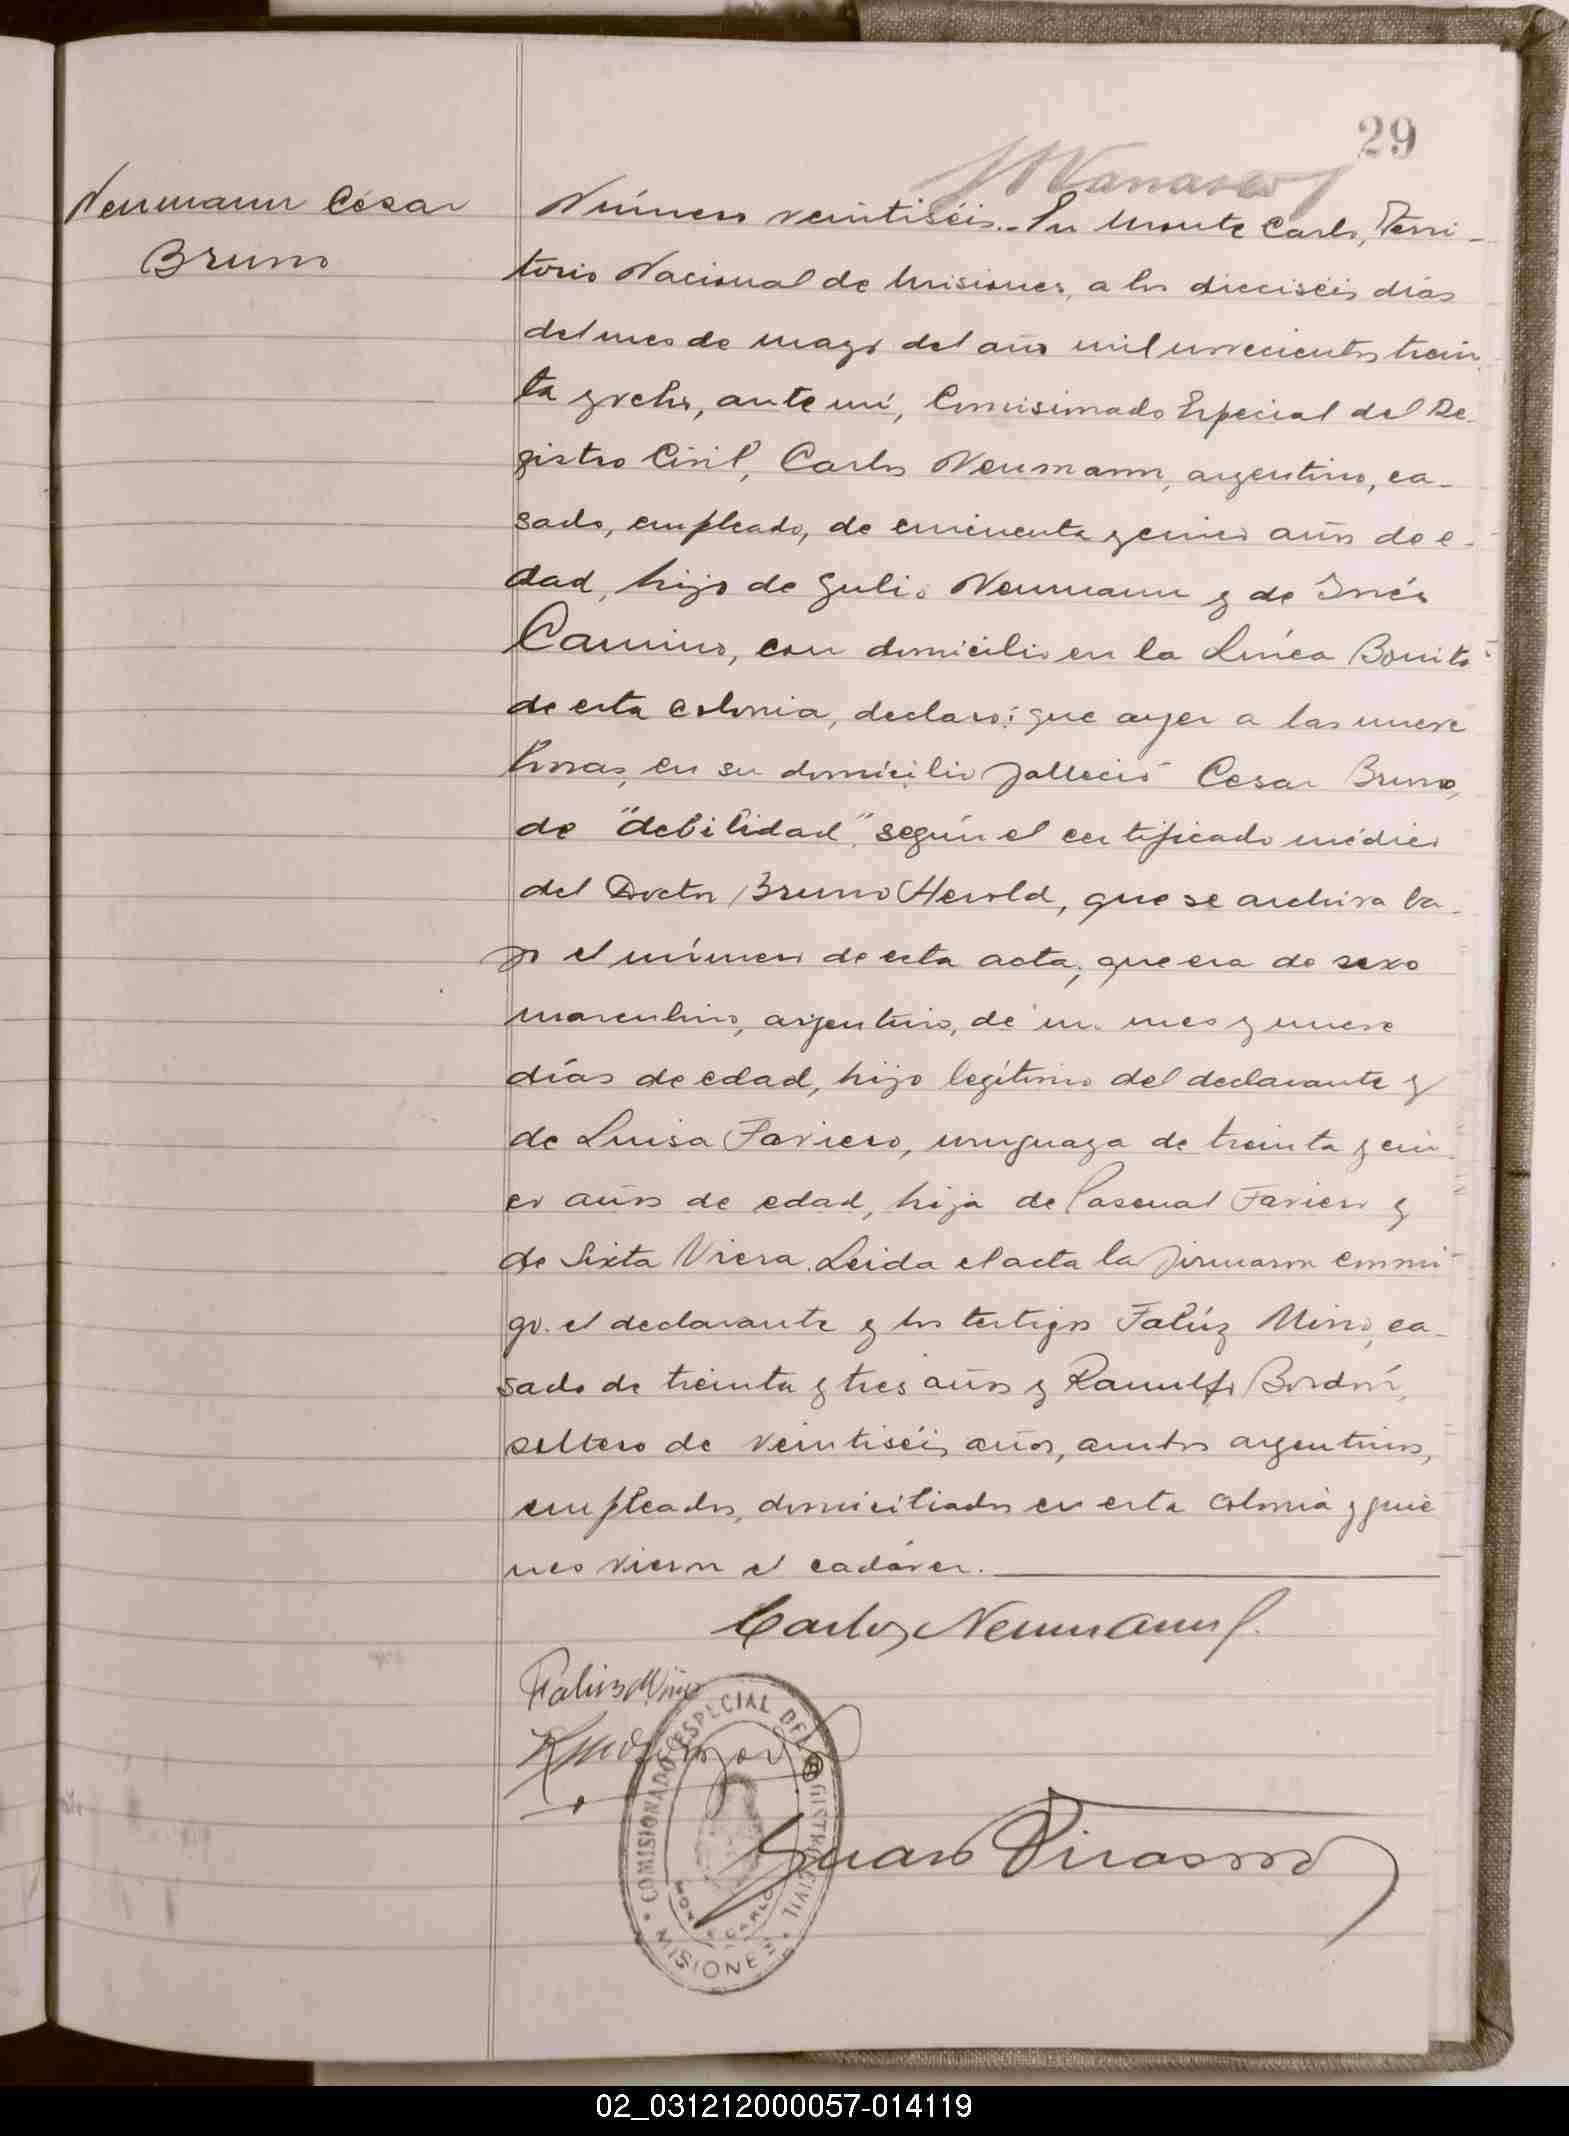 29
Neumann César
Bruno
Número veintiséis.- En Monte Carlo, Terri-
torio Nacional de Misiones, a los dieciséis días
del mes de mayo del año mil novecientos trein
ta y ocho, ante mí, Comisionado Especial del Re-
gistro Civil, Carlos Neumann, argentino, ca-
sado, empleado, de cincuenta y cinco años de e-
dad, hijo de Julio Neumann y de Inés
Camino, con domicilio en la Línea Bonito
de esta colonia, declaró: que ayer a las nueve
horas, en su domicilio falleció Cesar Bruno,
de "debilidad", según el certificado médico
del Doctor Bruno Herold, que se archiva ba-
jo el número de esta acta; que era de sexo
masculino, argentino, de un mes y nueve
días de edad, hijo legítimo del declarante y
de Luisa Faviero, uruguaya de treinta y cin-
co años de edad, hija de Pascual Faviero y
de Sixta Viera. Leida el acta la firmaron conmi-
go el declarante y los testigos Falúz Mino, ca-
sado de treinta y tres años y Ranulfo Bordón,
soltero de veintiséis años, ambos argentinos,
empleados, domiciliados en esta colonia y quie
nes vieron el cadáver.
Carlos Neumann
Faluz Miño
COMISIONADO ESPECIAL DEL REGISTRO CIVIL
MONTE CARLO
MISIONES
02_031212000057-014119